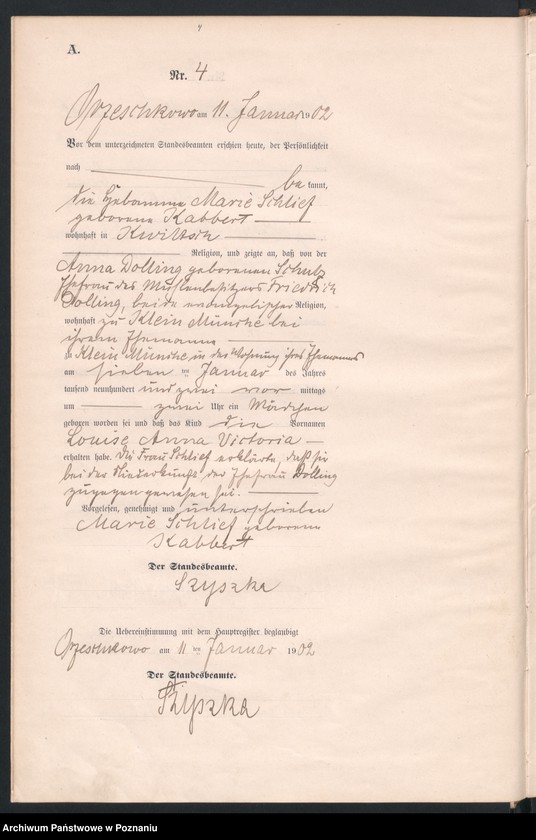 A.
Nr. 4
Orzeschkowo am 11. Januar 1902
Vor dem unterzeichneten Standesbeamten erschien heute, der Persönlichkeit
nach be kannt,
die Hebamme Marie Schlief
geborene Kabbert
wohnhaft in Kwiltsch
Religion, und zeigte an, daß von der
Anna Dolling geborenen Schulz
Ehefrau des Mühlenbesitzers Friedrich
Dolling, beide evangelischer Religion,
wohnhaft zu Klein Münche bei
ihrem Ehemanne
zu Klein Münche in der Wohnung ihres Ehemannes
am sieben ten Januar des Jahres
tausend neunhundert und zwei vor mittags
um zwei Uhr ein Mädchen
geboren worden sei und daß das Kind die Vornamen
Louise Anna Victoria
erhalten habe. Die Frau Schlief erklärte, daß sie
bei der Niederkunft der Ehefrau Dolling
zugegen gewesen sei.
Vorgelesen, genehmigt und unterschrieben
Marie Schlief geborene
Kabbert
Der Standesbeamte.
Szyszka
Die Uebereinstimmung mit dem Hauptregister beglaubigt
Orzeschkowo am 11 ten Januar 1902
Der Standesbeamte.
Szyszka
Archiwum Państwowe w Poznaniu